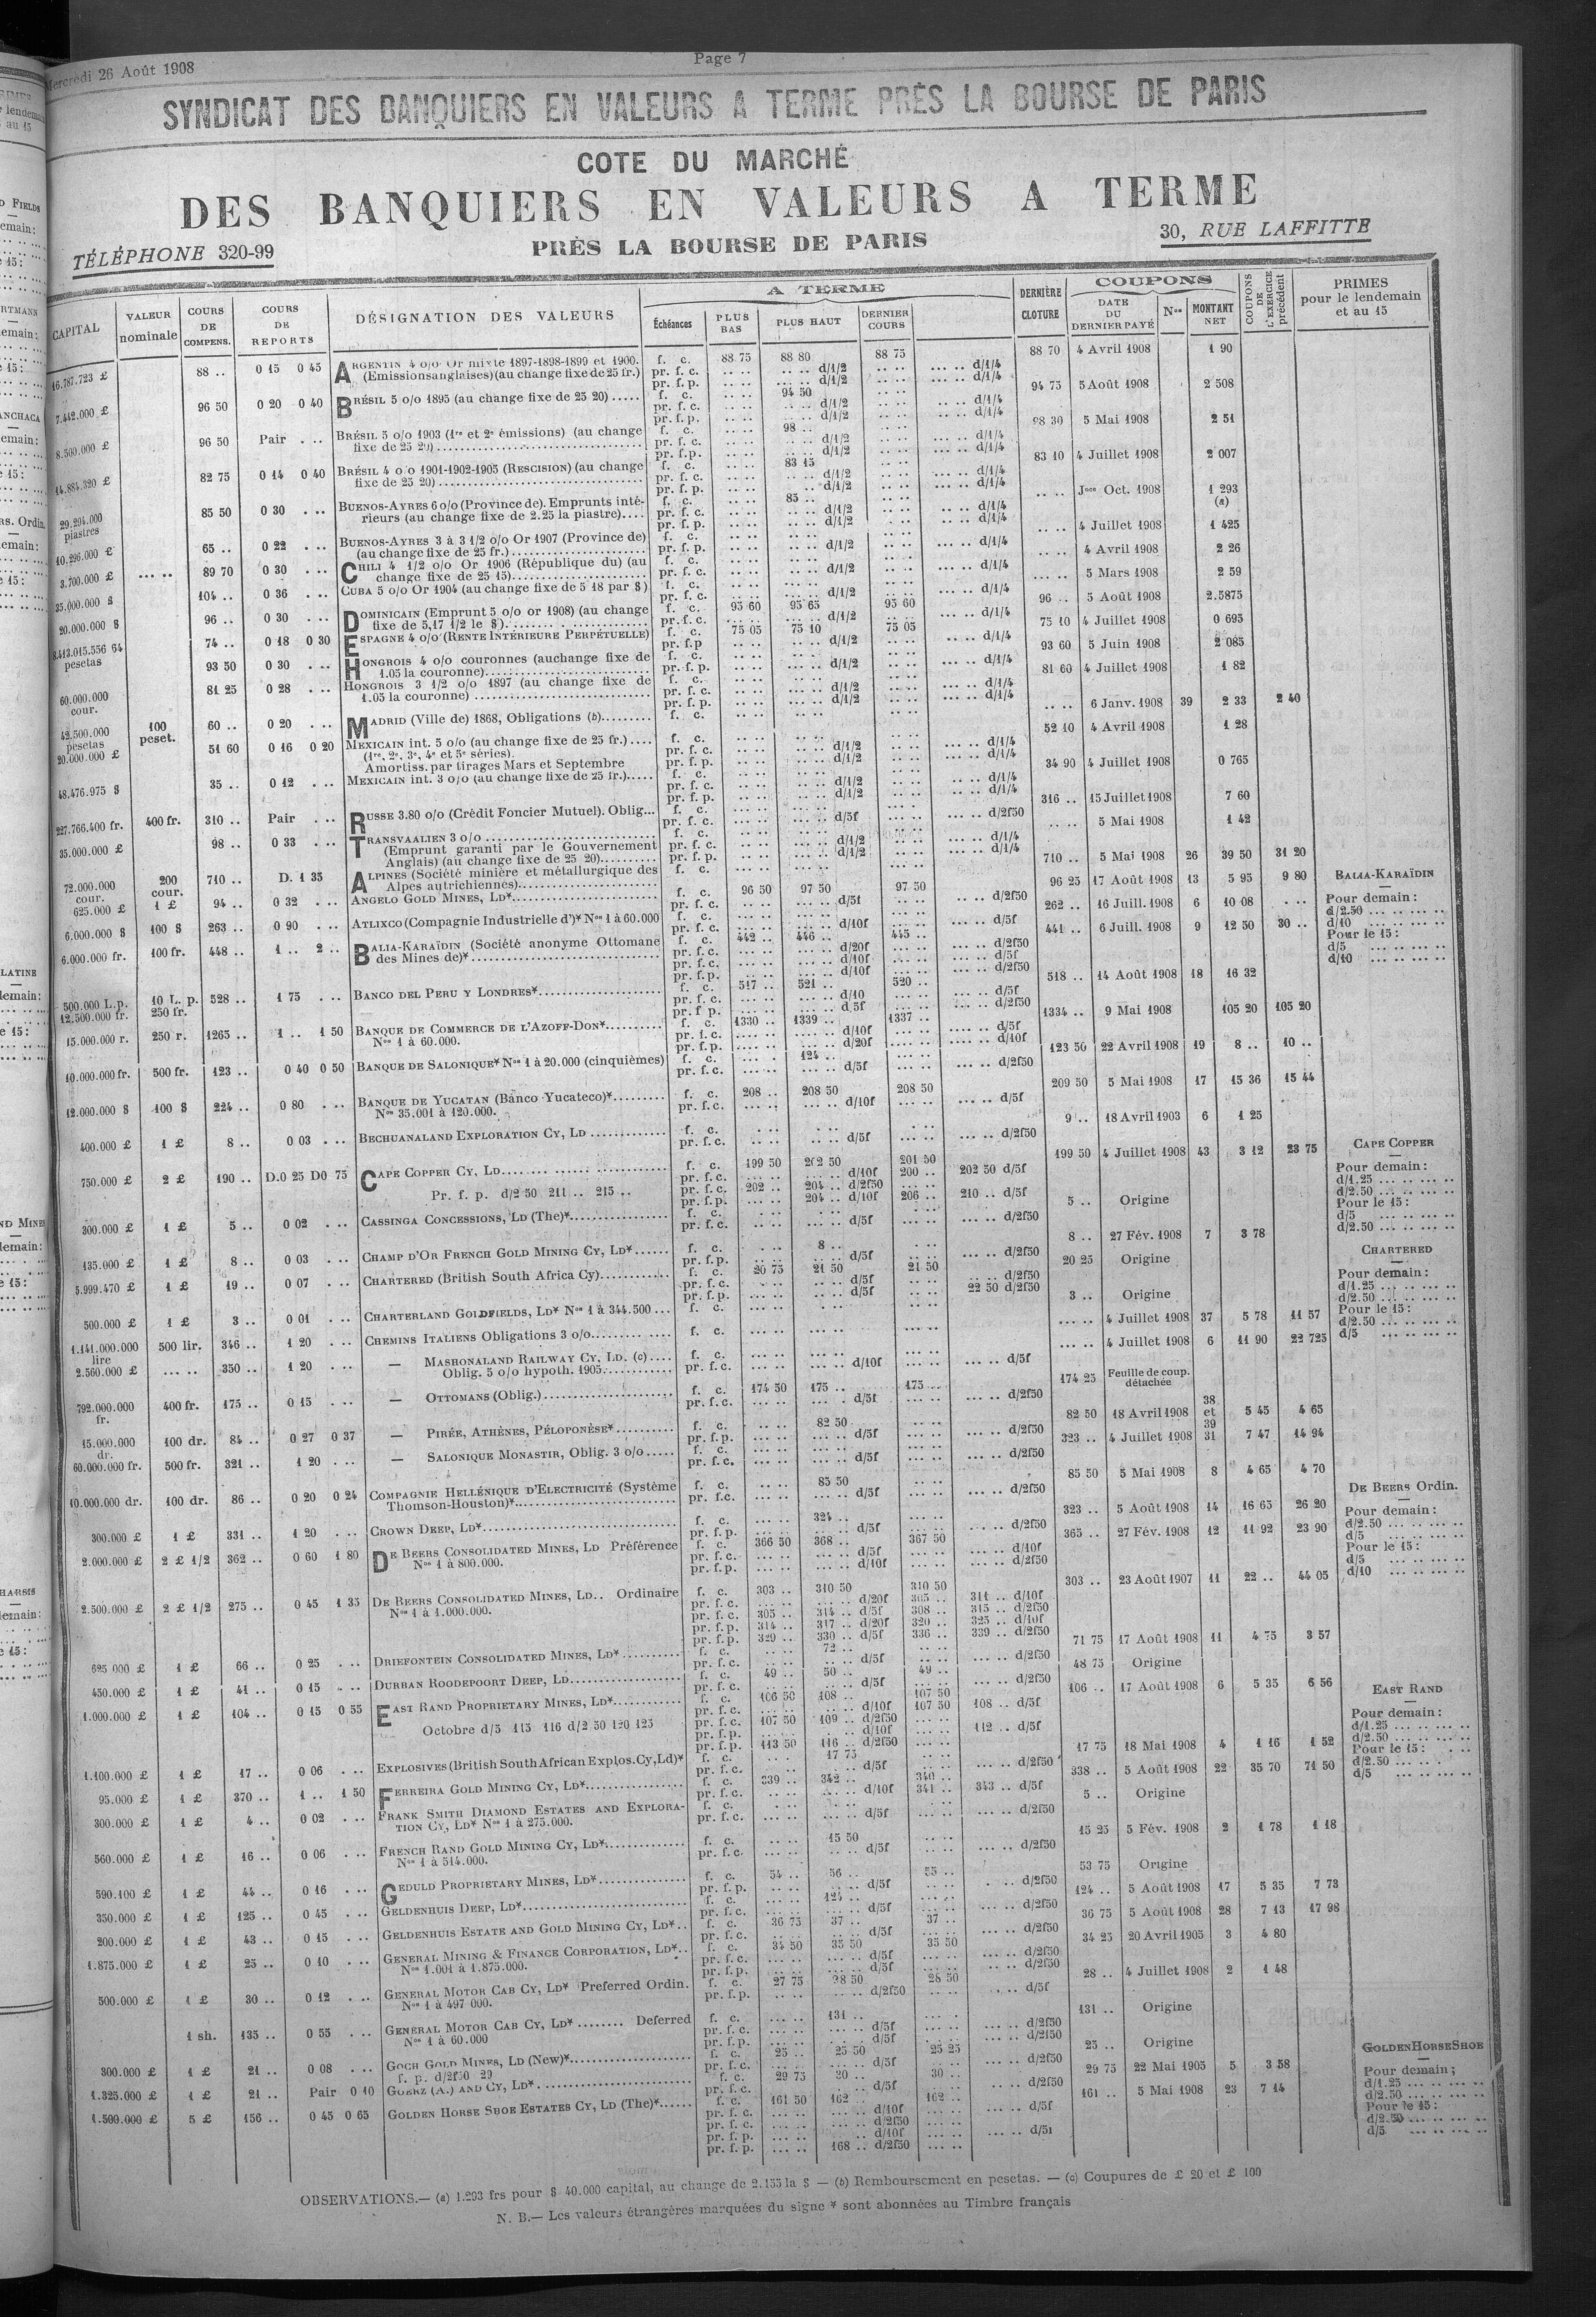 Mercredi 26 Août 1908
Page 7
SYNDICAT DES BANQUIERS EN VALEURS A TERME PRÈS LA BOURSE DE PARIS
COTE DU MARCHÉ
DES BANQUIERS EN VALEURS A TERME
PRÈS LA BOURSE DE PARIS
TÉLÉPHONE 320-99
30, RUE LAFFITTE
CAPITAL | VALEUR nominale | COURS DE COMPENS. | COURS DE REPORTS | DÉSIGNATION DES VALEURS | A TERME | Échéances | PLUS BAS | PLUS HAUT | DERNIER COURS | DERNIÈRE CLOTURE | COUPONS | DATE DU DERNIER PAYÉ | Nos | MONTANT NET | COUPONS DE L'EXERCICE précédent | PRIMES pour le lendemain et au 15
16.787.723 £ 88 .. 0 15 0 45 ARGENTIN 4 o/o Or mixte 1897-1898-1899 et 1900. f. c. 88 75 88 80 88 75 88 70 4 Avril 1908 1 90
(Emissions anglaises) (au change fixe de 25 fr.) pr. f. c. d/1/2 d/1/4
pr. f. p. d/1/2 d/1/4
7.442.000 £ 96 50 0 20 0 40 BRÉSIL 5 o/o 1895 (au change fixe de 25 20) ..... f. c. 94 50 94 75 5 Août 1908 2 508
pr. f. c. d/1/2 d/1/4
pr. f. p. d/1/2 d/1/4
8.500.000 £ 96 50 Pair . .. BRÉSIL 5 o/o 1903 (1re et 2e émissions) (au change f. c. 98 .. 98 30 5 Mai 1908 2 51
fixe de 25 20) pr. f. c. d/1/2 d/1/4
pr. f. p. d/1/2 d/1/4
14.884.320 £ 82 75 0 14 0 40 BRÉSIL 4 o/o 1901-1902-1905 (RESCISION) (au change f. c. 83 15 83 10 4 Juillet 1908 2 007
fixe de 25 20) pr. f. c. d/1/2 d/1/4
pr. f. p. d/1/2 d/1/4
29.294.000 piastres 85 50 0 30 . .. BUENOS-AYRES 6 o/o (Province de). Emprunts inté- f. c. 85 .. .. .. Jce Oct. 1908 1 293 (a)
rieurs (au change fixe de 2.25 la piastre).... pr. f. c. d/1/2 d/1/4
pr. f. p. d/1/2 d/1/4
10.296.000 £ 65 .. 0 22 . .. BUENOS-AYRES 3 à 3 1/2 o/o Or 1907 (Province de) f. c. .. .. 4 Juillet 1908 1 425
(au change fixe de 25 fr.) pr. f. p. d/1/2 d/1/4
3.700.000 £ ... .. 89 70 0 30 . .. CHILI 4 1/2 o/o Or 1906 (République du) (au f. c. .. .. 4 Avril 1908 2 26
change fixe de 25 15) pr. f. c. d/1/2 d/1/4
35.000.000 $ 104 .. 0 36 . .. CUBA 5 o/o Or 1904 (au change fixe de 5 18 par $) f. c. ... .. 5 Mars 1908 2 59
pr. f. c. d/1/2 d/1/4
20.000.000 $ 96 .. 0 30 . .. DOMINICAIN (Emprunt 5 o/o or 1908) (au change f. c. 95 60 95 65 95 60 96 .. 5 Août 1908 2.5875
fixe de 5,17 1/2 le $) pr. f. c. d/1/2 d/1/4
8.413.015.556 64 pesetas 74 .. 0 18 0 30 ESPAGNE 4 o/o (RENTE INTÉRIEURE PERPÉTUELLE) f. c. 75 05 75 10 75 05 75 10 4 Juillet 1908 0 695
pr. f. p d/1/2 d/1/4
93 50 0 30 . .. HONGROIS 4 o/o couronnes (au change fixe de f. c. 93 60 5 Juin 1908 2 085
1.05 la couronne) pr. f. p. d/1/2 d/1/4
60.000.000 cour. 81 25 0 28 . .. HONGROIS 3 1/2 o/o 1897 (au change fixe de f. c. 81 60 4 Juillet 1908 1 82
1.05 la couronne) pr. f. c. d/1/2 d/1/4
pr. f. p. d/1/2 d/1/4
42.500.000 pesetas 100 peset. 60 .. 0 20 . .. MADRID (Ville de) 1868, Obligations (b) f. c. .. .. 6 Janv. 1908 39 2 33 2 40
20.000.000 £ 51 60 0 16 0 20 MEXICAIN int. 5 o/o (au change fixe de 25 fr.) .... f. c. 52 10 4 Avril 1908 1 28
(1re, 2e, 3e, 4e et 5e séries). pr. f. c. d/1/2 d/1/4
Amortiss. par tirages Mars et Septembre pr. f. p. d/1/2 d/1/4
48.476.975 $ 35 .. 0 12 . .. MEXICAIN int. 3 o/o (au change fixe de 25 fr.)..... f. c. 34 90 4 Juillet 1908 0 765
pr. f. c. d/1/2 d/1/4
pr. f. p. d/1/2 d/1/4
227.766.400 fr. 400 fr. 310 .. Pair . .. RUSSE 3.80 o/o (Crédit Foncier Mutuel). Oblig... f. c. 316 .. 15 Juillet 1908 7 60
pr. f. c. d/5f d/2f50
35.000.000 £ 98 .. 0 33 . .. TRANSVAALIEN 3 o/o f. c. .. .. 5 Mai 1908 1 42
(Emprunt garanti par le Gouvernement pr. f. c. d/1/2 d/1/4
Anglais) (au change fixe de 25 20) pr. f. p. d/1/2 d/1/4
72.000.000 cour. 200 cour. 710 .. D. 1 35 ALPINES (Société minière et métallurgique des f. c. 710 .. 5 Mai 1908 26 39 50 31 20
Alpes autrichiennes)
625.000 £ 1 £ 94 .. 0 32 . .. ANGELO GOLD MINES, LD* f. c. 96 50 97 50 97 50 96 25 17 Août 1908 13 5 95 9 80
pr. f. c. d/5f d/2f50
6.000.000 $ 100 $ 263 .. 0 90 . .. ATLIXCO (Compagnie Industrielle d')* Nos 1 à 60.000 f. c. 262 .. 16 Juill. 1908 6 10 08 . ..
pr. f. c. d/10f d/5f
6.000.000 fr. 100 fr. 448 .. 1 .. 2 .. BALIA-KARAÏDIN (Société anonyme Ottomane f. c. 442 .. 446 .. 445 .. 441 .. 6 Juill. 1908 9 12 50 30 ..
des Mines de)* pr. f. c. d/20f d/2f50
pr. f. c. d/10f d/5f
pr. f. p. d/10f d/2f50
500.000 L.p. 12.500.000 fr. 10 L. p. 250 fr. 528 .. 1 75 . .. BANCO DEL PERU Y LONDRES* f. c. 517 .. 521 .. 520 .. 518 .. 14 Août 1908 18 16 32
pr. f. c. d/10 d/5f
pr. f. p. d/5f d/2f50
15.000.000 r. 250 r. 1265 .. 1 .. 1 50 BANQUE DE COMMERCE DE L'AZOFF-DON* f. c. 1330 .. 1339 .. 1337 .. 1334 .. 9 Mai 1908 105 20 105 20
Nos 1 à 60.000. pr. f. c. d/10f d/5f
pr. f. p. d/20f d/10f
10.000.000 fr. 500 fr. 123 .. 0 40 0 50 BANQUE DE SALONIQUE* Nos 1 à 20.000 (cinquièmes) f. c. 124 .. 123 50 22 Avril 1908 19 8 .. 10 ..
pr. f. c. d/5f d/2f50
12.000.000 $ 100 $ 224 .. 0 80 . .. BANQUE DE YUCATAN (Banco Yucateco)* f. c. 208 .. 208 50 208 50 209 50 5 Mai 1908 17 15 36 15 44
Nos 35.001 à 120.000. pr. f. c. d/10f d/5f
400.000 £ 1 £ 8 .. 0 03 . .. BECHUANALAND EXPLORATION CY, LD f. c. 9 .. 18 Avril 1903 6 1 25
pr. f. c. d/5f d/2f50
750.000 £ 2 £ 190 .. D.0 25 D0 75 CAPE COPPER CY, LD f. c. 199 50 202 50 201 50 199 50 4 Juillet 1908 43 3 12 23 75
pr. f. c. d/10f 200 .. 202 50 d/5f
Pr. f. p. d/2 50 211 .. 215 .. pr. f. c. 202 .. 204 .. d/2f50
pr. f. p. 204 .. d/10f 206 .. 210 .. d/5f
300.000 £ 1 £ 5 .. 0 02 . .. CASSINGA CONCESSIONS, LD (The)* f. c. 5 .. Origine
pr. f. c. d/5f d/2f50
135.000 £ 1 £ 8 .. 0 03 . .. CHAMP D'OR FRENCH GOLD MINING CY, LD* f. c. 8 .. 8 .. 27 Fév. 1908 7 3 78
pr. f. p. d/5f d/2f50
5.999.470 £ 1 £ 19 .. 0 07 . .. CHARTERED (British South Africa Cy) f. c. 20 75 21 50 21 50 20 25 Origine
pr. f. c. d/5f d/2f50
pr. f. p. d/5f 22 50 d/2f50
500.000 £ 1 £ 3 .. 0 01 . .. CHARTERLAND GOLDFIELDS, LD* Nos 1 à 344.500 ... f. c. 3 .. Origine
1.141.000.000 lire 500 lir. 346 .. 1 20 . .. CHEMINS ITALIENS Obligations 3 o/o f. c. ... .. 4 Juillet 1908 37 5 78 11 57
2.560.000 £ ... .. 350 .. 1 20 . .. — MASHONALAND RAILWAY CY, LD. (c) .... f. c. ... .. 4 Juillet 1908 6 11 90 22 725
Oblig. 5 o/o hypoth. 1905 pr. f. c. d/10f d/5f
792.000.000 fr. 400 fr. 175 .. 0 15 . .. — OTTOMANS (Oblig.) f. c. 174 50 175 .. 175 .. 174 25 Feuille de coup. détachée
pr. f. c. d/5f d/2f50
15.000.000 dr. 100 dr. 84 .. 0 27 0 37 — PIRÉE, ATHÈNES, PÉLOPONÈSE* f. c. 82 50 82 50 18 Avril 1908 38 et 39 5 45 4 65
pr. f. p. d/5f d/2f50
60.000.000 fr. 500 fr. 321 .. 1 20 . .. — SALONIQUE MONASTIR, Oblig. 3 o/o f. c. 323 .. 4 Juillet 1908 31 7 47 14 94
pr. f. c. d/5f d/2f50
10.000.000 dr. 100 dr. 86 .. 0 20 0 24 COMPAGNIE HELLÉNIQUE D'ELECTRICITÉ (Système f. c. 85 50 85 50 5 Mai 1908 8 4 65 4 70
Thomson-Houston)* pr. f. c. d/5f d/2f50
300.000 £ 1 £ 331 .. 1 20 . .. CROWN DEEP, LD* f. c. 324 .. 323 .. 5 Août 1908 14 16 65 26 20
pr. f. p. d/5f d/2f50
2.000.000 £ 2 £ 1/2 362 .. 0 60 1 80 DE BEERS CONSOLIDATED MINES, LD Préférence f. c. 366 50 368 .. 367 50 365 .. 27 Fév. 1908 12 11 92 23 90
Nos 1 à 800.000. pr. f. c. d/5f d/10f
pr. f. p. d/10f d/2f50
2.500.000 £ 2 £ 1/2 275 .. 0 45 1 35 DE BEERS CONSOLIDATED MINES, LD.. Ordinaire f. c. 303 .. 310 50 310 50 303 .. 23 Août 1907 11 22 .. 44 05
Nos 1 à 1.000.000. pr. f. c. d/20f 305 .. 311 .. d/10f
pr. f. c. 305 .. 314 .. d/5f 308 .. 315 .. d/2f50
pr. f. p. 314 .. 317 .. d/20f 320 .. 325 .. d/10f
pr. f. p. 329 .. 330 .. d/5f 336 .. 339 .. d/2f50
625 000 £ 1 £ 66 .. 0 25 . .. DRIEFONTEIN CONSOLIDATED MINES, LD* f. c. 72 .. 71 75 17 Août 1908 11 4 75 3 57
pr. f. c. d/5f d/2f50
450.000 £ 1 £ 41 .. 0 15 . .. DURBAN ROODEPOORT DEEP, LD f. c. 49 .. 50 .. 49 .. 48 75 Origine
pr. f. c. d/5f d/2f50
1.000.000 £ 1 £ 104 .. 0 15 0 55 EAST RAND PROPRIETARY MINES, LD* f. c. 106 50 108 .. 107 50 106 .. 17 Août 1908 6 5 35 6 56
pr. f. c. d/10f 107 50 108 .. d/5f
Octobre d/5 115 116 d/2 50 120 125 pr. f. c. 107 50 109 .. d/2f50
pr. f. p. d/10f 112 .. d/5f
pr. f. p. 113 50 116 .. d/2f50
1.100.000 £ 1 £ 17 .. 0 06 . .. EXPLOSIVES (British South African Explos. Cy, Ld)* f. c. 17 75 17 75 18 Mai 1908 4 1 16 1 52
pr. f. c. d/5f d/2f50
95.000 £ 1 £ 370 .. 1 .. 1 50 FERREIRA GOLD MINING CY, LD* f. c. 339 .. 342 .. 340 .. 338 .. 5 Août 1908 22 35 70 71 50
pr. f. c. d/10f 341 .. 343 .. d/5f
300.000 £ 1 £ 4 .. 0 02 . .. FRANK SMITH DIAMOND ESTATES AND EXPLORA- f. c. 5 .. Origine
TION CY, LD* Nos 1 à 275.000. pr. f. c. d/5f d/2f50
560.000 £ 1 £ 16 .. 0 06 . .. FRENCH RAND GOLD MINING CY, LD* f. c. 15 50 15 25 5 Fév. 1908 2 1 78 1 18
Nos 1 à 514.000. pr. f. c. d/5f d/2f50
590.100 £ 1 £ 44 .. 0 16 . .. GEDULD PROPRIETARY MINES, LD* f. c. 54 .. 56 .. 55 .. 53 75 Origine
pr. f. p. d/5f d/2f50
350.000 £ 1 £ 125 .. 0 45 . .. GELDENHUIS DEEP, LD* f. c. 124 .. 124 .. 5 Août 1908 17 5 35 7 73
pr. f. c. d/5f d/2f50
200.000 £ 1 £ 43 .. 0 15 . .. GELDENHUIS ESTATE AND GOLD MINING CY, LD*.. f. c. 36 75 37 .. 37 .. 36 75 5 Août 1908 28 7 13 17 98
pr. f. c. d/5f d/2f50
1.875.000 £ 1 £ 25 .. 0 10 . .. GENERAL MINING & FINANCE CORPORATION, LD*.. f. c. 34 50 35 50 35 50 34 25 20 Avril 1905 3 4 80
Nos 1.001 à 1.875.000. pr. f. c. d/5f d/2f50
pr. f. p. d/5f d/2f50
500.000 £ 1 £ 30 .. 0 12 . .. GENERAL MOTOR CAB CY, LD* Preferred Ordin. f. c. 27 75 28 50 28 50 28 .. 4 Juillet 1908 2 1 48
Nos 1 à 497 000. pr. f. p. d/2f50 d/5f
1 sh. 135 .. 0 55 . .. GENERAL MOTOR CAB CY, LD* Deferred f. c. 131 .. 131 .. Origine
Nos 1 à 60.000 pr. f. c. d/5f d/2f50
pr. f. p. d/5f d/2f50
300.000 £ 1 £ 21 .. 0 08 . .. GOCH GOLD MINES, LD (New)* f. c. 25 .. 25 50 25 25 25 .. Origine
f. p. d/2f50 29 pr. f. c. d/5f d/2f50
1.325.000 £ 1 £ 21 .. Pair 0 10 GOERZ (A.) AND CY, LD* f. c. 29 75 30 .. 30 .. 29 75 22 Mai 1905 5 3 58
pr. f. c. d/5f d/2f50
1.500.000 £ 5 £ 156 .. 0 45 0 65 GOLDEN HORSE SHOE ESTATES CY, LD (The)* f. c. 161 50 162 .. 162 .. 161 .. 5 Mai 1908 23 7 14
pr. f. c. d/10f d/5f
pr. f. c. d/2f50
pr. f. p. d/10f d/5f
pr. f. p. 168 .. d/2f50
BALIA-KARAÏDIN
Pour demain :
d/2.50 ... .. ... ..
d/10 ... .. ... ..
Pour le 15 :
d/5 ... .. ... ..
d/10 ... .. ... ..
CAPE COPPER
Pour demain :
d/1.25 ... .. ... ..
d/2.50 ... .. ... ..
Pour le 15 :
d/5 ... .. ... ..
d/2.50 ... .. ... ..
CHARTERED
Pour demain :
d/1.25 ... .. ... ..
d/2.50 ... .. ... ..
Pour le 15 :
d/2.50 ... .. ... ..
d/5 ... .. ... ..
DE BEERS Ordin.
Pour demain :
d/2.50 ... .. ... ..
d/5 ... .. ... ..
Pour le 15 :
d/5 ... .. ... ..
d/10 ... .. ... ..
EAST RAND
Pour demain :
d/1.25 ... .. ... ..
d/2.50 ... .. ... ..
Pour le 15 :
d/2.50 ... .. ... ..
d/5 ... .. ... ..
GOLDEN HORSE SHOE
Pour demain ;
d/1.25 ... .. ... ..
d/2.50 ... .. ... ..
Pour le 15 :
d/2.50 ... .. ... ..
d/5 ... .. ... ..
OBSERVATIONS.— (a) 1.293 frs pour $ 40.000 capital, au change de 2.155 la $ — (b) Remboursement en pesetas. — (c) Coupures de £ 20 et £ 100
N. B.— Les valeurs étrangères marquées du signe * sont abonnées au Timbre français